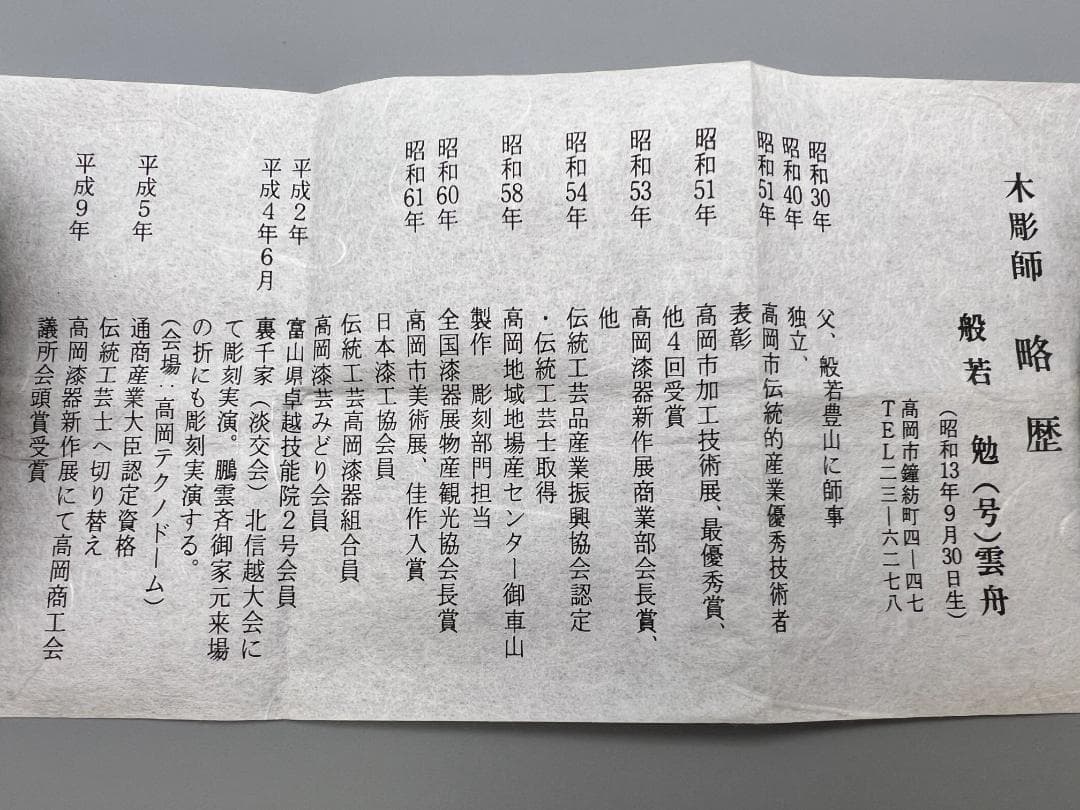 木彫師　略歴
般若　勉(号)雲舟
(昭和13年9月30日生)
高岡市鐘紡町四―四七
TEL二三―六二七八
昭和30年　父、般若豊山に師事
昭和40年　独立、
昭和51年　高岡市伝統的産業優秀技術者
表彰
昭和51年　高岡市加工技術展、最優秀賞、
他4回受賞
昭和53年　高岡漆器新作展商業部会長賞、
他
昭和54年　伝統工芸品産業振興協会認定
・伝統工芸士取得
昭和58年　高岡地域地場産センター御車山
製作　彫刻部門担当
昭和60年　全国漆器展物産観光協会長賞
昭和61年　高岡市美術展、佳作入賞
日本漆工協会員
伝統工芸高岡漆器組合員
高岡漆芸みどり会員
平成2年　富山県卓越技能院2号会員
平成4年6月　裏千家(淡交会)北信越大会に
て彫刻実演。鵬雲斉御家元来場
の折にも彫刻実演する。
(会場:高岡テクノドーム)
平成5年　通商産業大臣認定資格
伝統工芸士へ切り替え
平成9年　高岡漆器新作展にて高岡商工会
議所会頭賞受賞